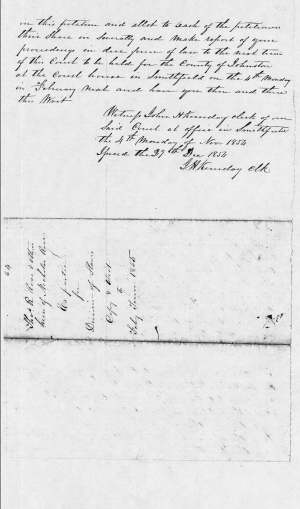 in this petition and allot to each of the petitioners
their share in severalty and make report of your
proceedings in due form of law to the next term
of this Court to be held for the County of Johnston
at the Court house in Smithfield on the 4th Monday
in February next and have you then and there
this Writ
Witness John H Kennedy clerk of our
Said Court at office in Smithfield
the 4th Monday of Nov 1854
Issued the 27th Dec 1854
J H Kennedy Clk
Thos R
heirs of
Ex parte
for
Division of Slaves
Copy & Writ
to
Feby Term 1855